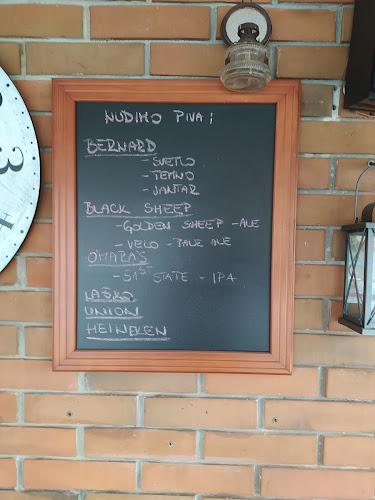 NUDIMO PIVA:
BERNARD
- SVETLO
- TEMNO
- JANTAR
BLACK SHEEP
- GOLDEN SHEEP - ALE
- VELO - PALE ALE
O'HARA'S
- 51ST STATE - IPA
LAŠKO
UNION
HEINEKEN
3